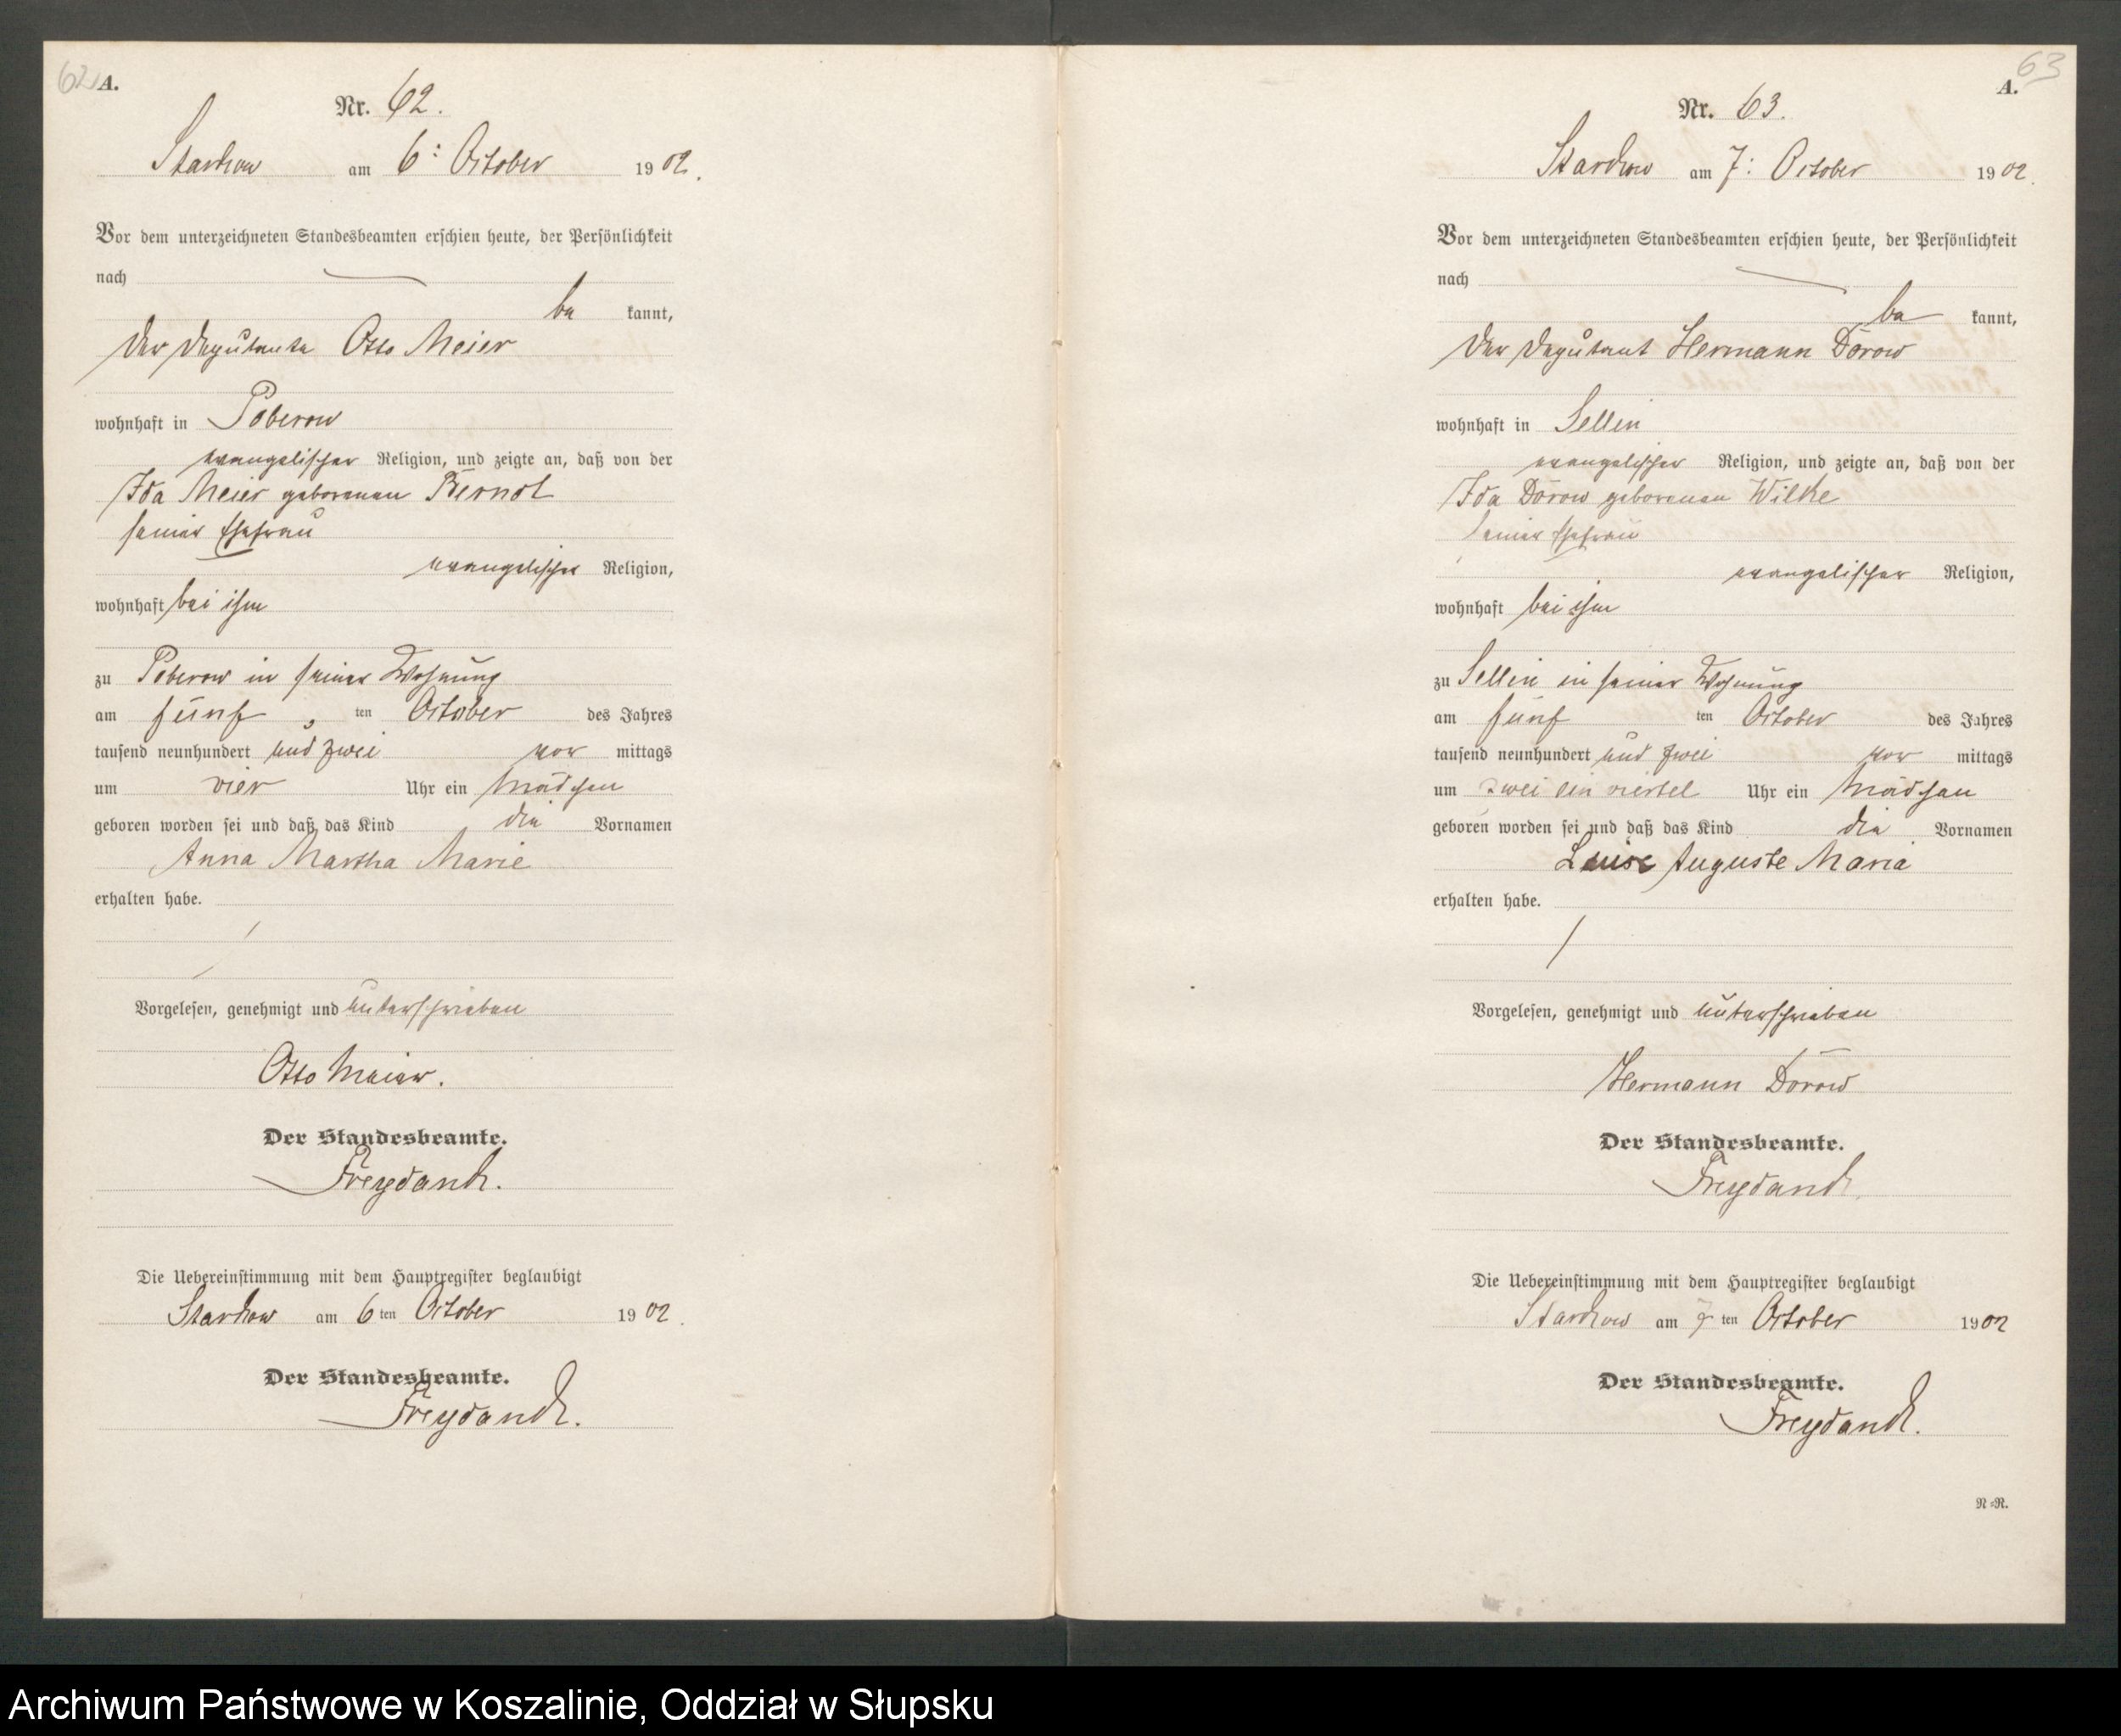 62 A.
Nr. 62.
Starkow am 6: October 1902.
Vor dem unterzeichneten Standesbeamten erschien heute, der Persönlichkeit
nach
be kannt,
der Deputante Otto Meier
wohnhaft in Poberow
evangelischer Religion, und zeigte an, daß von der
Ida Meier geborenen Berndt
seiner Ehefrau
evangelischer Religion,
wohnhaft bei ihm
zu Poberow in seiner Wohnung
am fünf ten October des Jahres
tausend neunhundert und zwei vor mittags
um vier Uhr ein Mädchen
geboren worden sei und daß das Kind die Vornamen
Anna Martha Marie
erhalten habe.
Vorgelesen, genehmigt und unterschrieben
Otto Meier.
Der Standesbeamte.
Freydank.
Die Uebereinstimmung mit dem Hauptregister beglaubigt
Starkow am 6 ten October 1902.
Der Standesbeamte.
Freydank.
63
A.
Nr. 63.
Starkow am 7: October 1902.
Vor dem unterzeichneten Standesbeamten erschien heute, der Persönlichkeit
nach
be kannt,
der Deputant Hermann Dorow
wohnhaft in Sellin
evangelischer Religion, und zeigte an, daß von der
Ida Dorow geborenen Wilke
seiner Ehefrau
evangelischer Religion,
wohnhaft bei ihm
zu Sellin in seiner Wohnung
am fünf ten October des Jahres
tausend neunhundert und zwei vor mittags
um zwei ein viertel Uhr ein Mädchen
geboren worden sei und daß das Kind die Vornamen
Luise Auguste Maria
erhalten habe.
Vorgelesen, genehmigt und unterschrieben
Hermann Dorow
Der Standesbeamte.
Freydank.
Die Uebereinstimmung mit dem Hauptregister beglaubigt
Starkow am 7 ten October 1902
Der Standesbeamte.
Freydank.
N=R.
Archiwum Państwowe w Koszalinie, Oddział w Słupsku